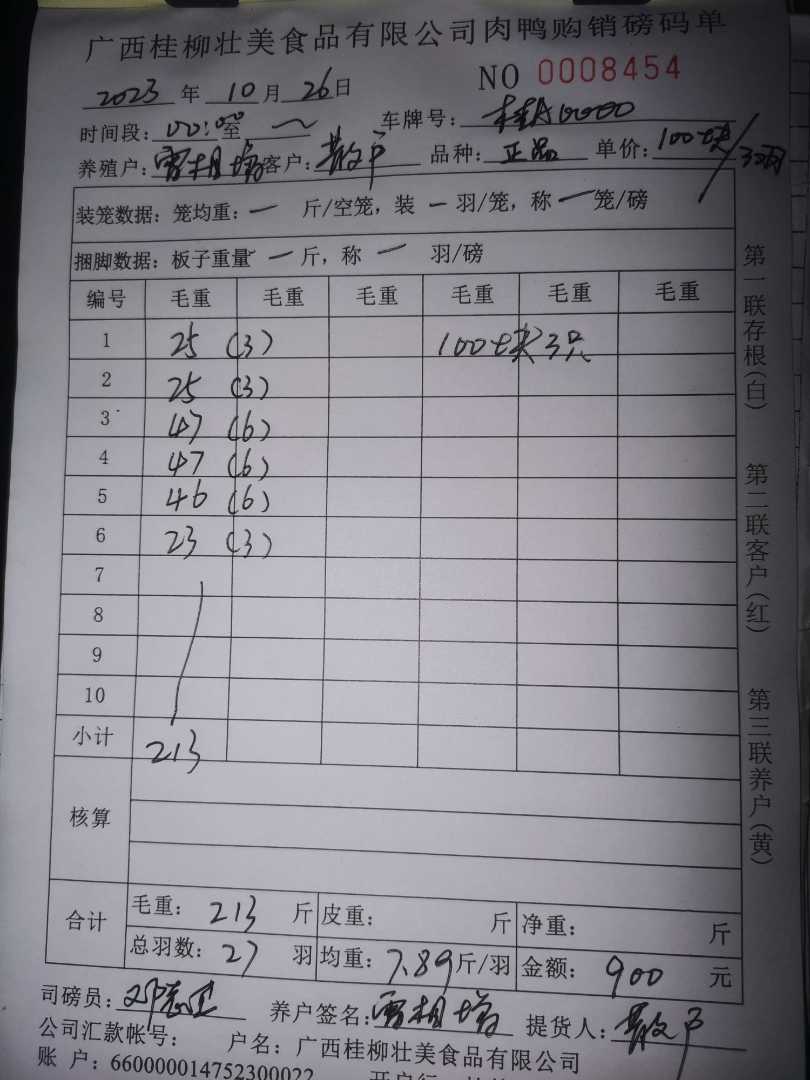 广西桂柳壮美食品有限公司肉鸭购销磅码单
NO 0008454
2023 年 10 月 26 日
时间段: 00:00 至 ~ 车牌号: 桂A00000
养殖户: 雷相 客户: 散户 品种: 正品 单价: 100块/3羽
装笼数据: 笼均重: 一 斤/空笼, 装 一 羽/笼, 称 一 笼/磅
捆脚数据: 板子重量 一 斤, 称 一 羽/磅
编号 毛重 毛重 毛重 毛重 毛重 毛重
1 25 (3) 100块3只
2 25 (3)
3 47 (6)
4 47 (6)
5 46 (6)
6 23 (3)
7
8
9
10
小计 213
核算
合计 毛重: 213 斤 皮重: 斤 净重: 斤
总羽数: 27 羽 均重: 7.89 斤/羽 金额: 900 元
司磅员: 邓 养户签名: 雷相 提货人: 散户
公司汇款帐号: 户名: 广西桂柳壮美食品有限公司
账 户: 660000014752300022 开户行:
第一联存根(白) 第二联客户(红) 第三联养户(黄)